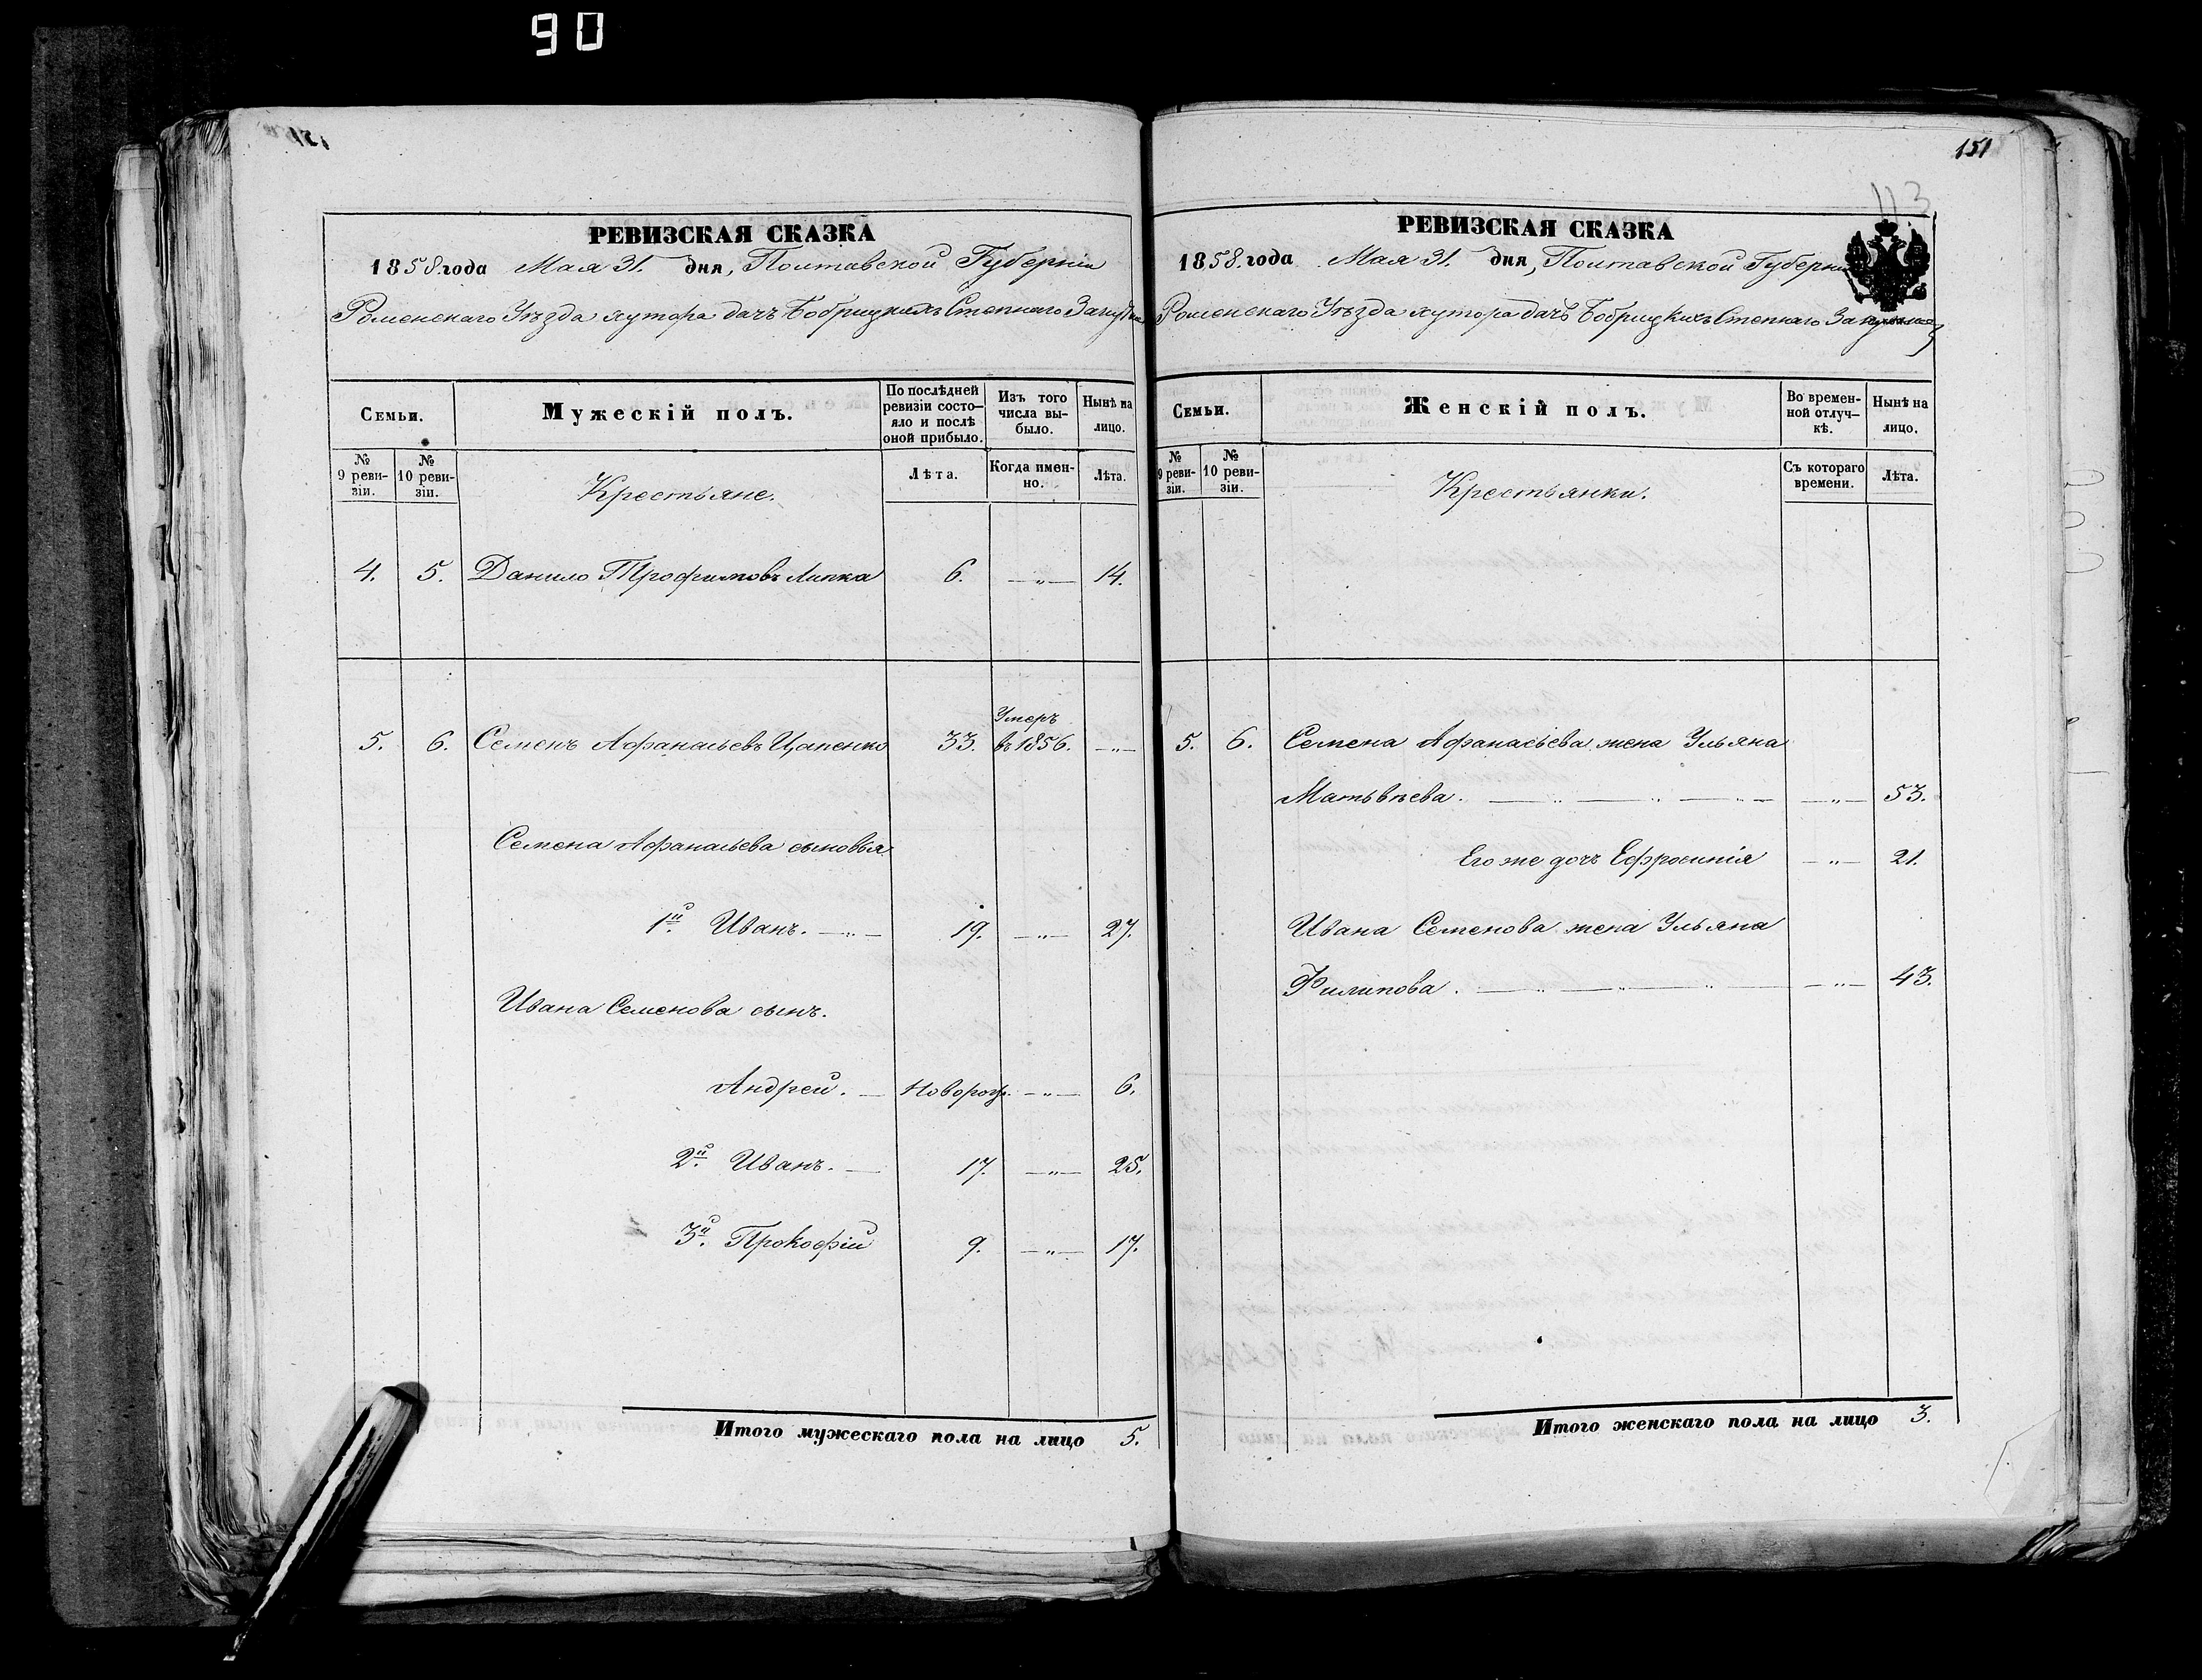 90
151
113
РЕВИЗСКАЯ СКАЗКА
1858. года Мая 31. дня, Полтавской Губерніи
Роменскаго Уѣзда хутора дачъ Бобрицкихъ Степнаго
Семьи.
Мужескій полъ.
По послѣдней ревизіи состо–
яло и послѣ
оной прибыло.
Изъ того
числа вы–
было.
Нынѣ на
лицо.
№
9 реви–
зіи.
№
10 реви–
зіи.
Крестьяне.
Лѣта.
Когда имен–
но.
Лѣта.
4. 5. Данило Трофимовъ Липка 6. —„— 14.
Умеръ
5. 6. Семенъ Афанасьевъ Цапенко 33. въ 1856. —„—
Семена Афанасьева сыновья
1й. Иванъ. —„— 19. —„— 27.
Ивана Семенова сынъ.
Андрей. — Новорож. —„— 6.
2й. Иванъ. — 17. —„— 25.
3й. Прокофій 9. —„— 17.
Итого мужескаго пола на лицо 5.
РЕВИЗСКАЯ СКАЗКА
1858. года Мая 31. дня, Полтавской Губерніи
Роменскаго Уѣзда хутора дачъ Бобрицкихъ Степнаго
Семьи.
Женскій полъ.
Во времен–
ной отлуч–
кѣ.
Нынѣ на
лицо.
№
9 реви–
зіи.
№
10 реви–
зіи.
Крестьянки.
Съ котораго
времени.
Лѣта.
5. 6. Семена Афанасьева жена Ульяна
Матьвѣева. — „ — „ — „ — —„— 53.
Его же дочь Ефросинія —„— 21.
Ивана Семенова жена Ульяна
Филипова. — „ — „ — „ — —„— 43.
Итого женскаго пола на лицо 3.